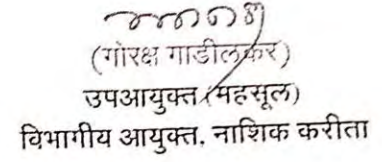 (गोरक्ष गाडीलकर)
उपआयुक्त (महसूल)
विभागीय आयुक्त, नाशिक करीता